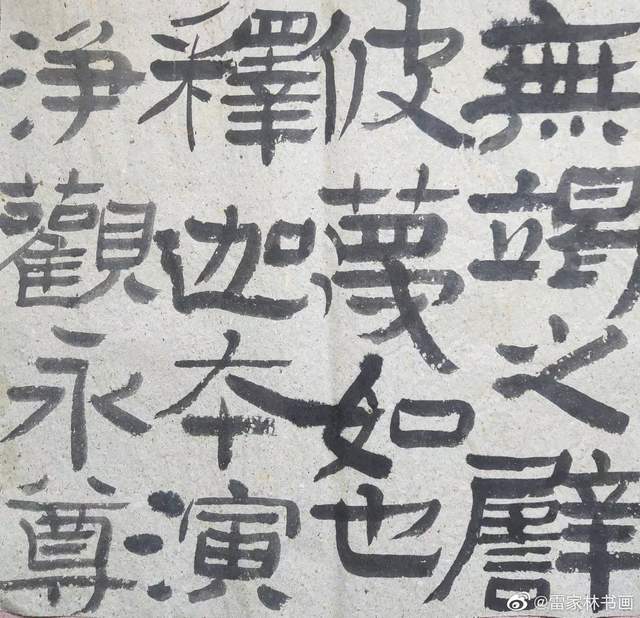 無竭之譬
彼夢如也
釋迦本演
淨觀永尊
@雷家林书画